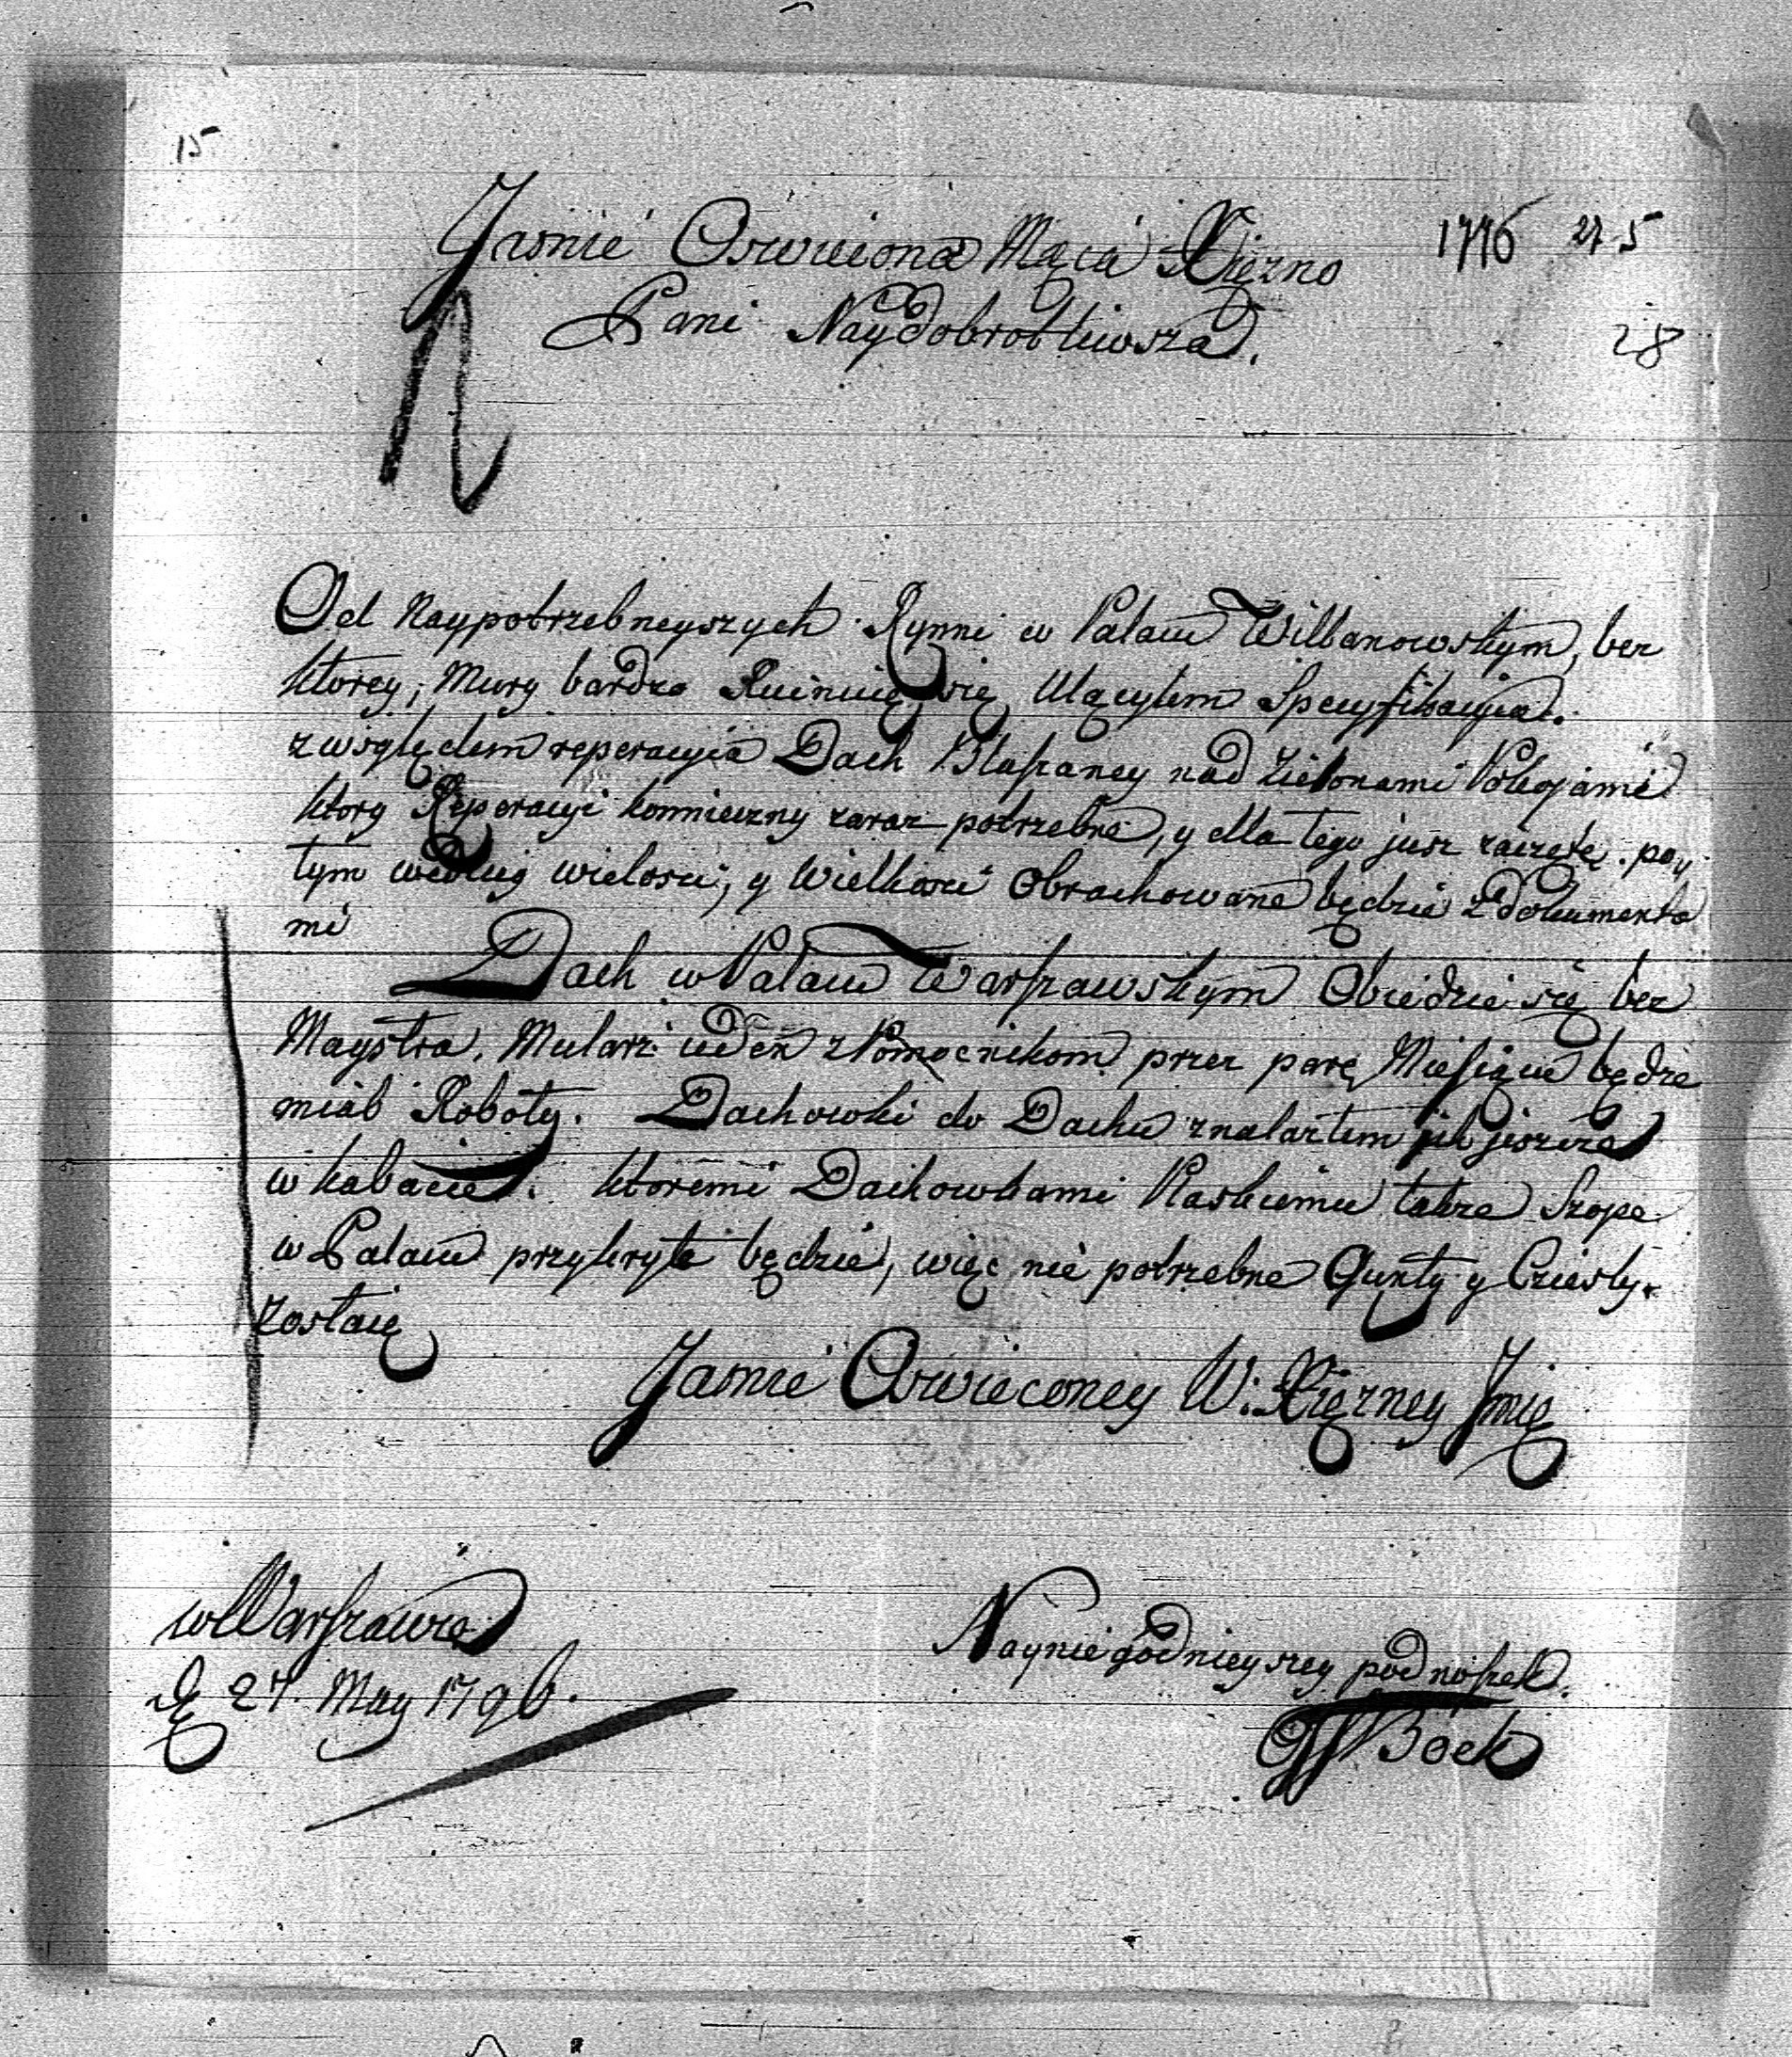 15
Jasnie Oswiciona Mąciá Xięzno
1776 27 5
Pani Naydobrotliwsza.
28
Od Naypotrzebneyszych Rynni w Palacu Willanowskym, bez
ktorey, Mury bardzo Ruinuię się Ulączylem Specyfikacyia.
zwsględem reperacyia Dach Blaszaney nad Zielonami Pokojami
ktory Reperacyi konnieczny zaraz potrzebna, y dla tego jusz zaczęte. po
tym wedlug wielosci, y Wielkosci Obrachowane będzie z Dokumenta
mi
Dach w Palacu Warszawskym Obiedzie się bez
Maystra. Mularz ieden z Pomocnikom przez parę Miesiącu będze
mial Roboty. Dachowki do Dachu znalazlem jih jeszcze
w kabacie. ktoremi Dachowkami Raskiemu takze Szope
w Palacu przykryte będzie, więc nie potrzebne Gunty y Cziesly.
zostaię
Jasnie Oswieconey W: Xięzney Jmię
w Warszawie
D 27. May 1796.
Nayniegodnieyszey podnószek.
Böck